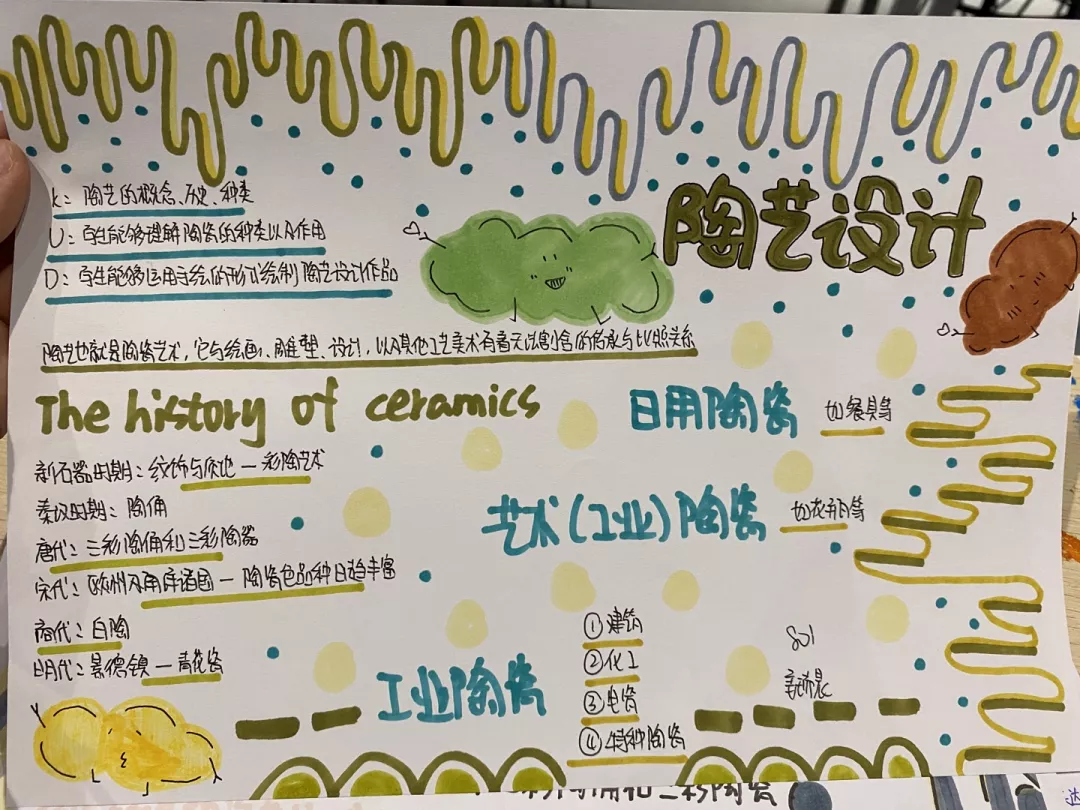 陶艺设计
K：陶艺的概念、历史、种类
U：学生能够理解陶瓷的种类以及作用
D：学生能够运用手绘的形式绘制陶艺设计作品
陶艺也就是陶瓷艺术，它与绘画、雕塑、设计，以及其他工艺美术有着无法割舍的传承与比照关系
The history of ceramics
新石器时期：纹饰与质地一彩陶艺术
秦汉时期：陶俑
唐代：三彩陶俑和三彩陶器
宋代：欧洲 诸国一陶瓷色品种日趋丰富
商代：白陶
明代：景德镇一青花瓷
日用陶瓷 如餐具等
艺术（工业）陶瓷 如花瓶等
工业陶瓷
①建筑
②化工
③电瓷
④特种陶瓷
801
三彩陶瓷